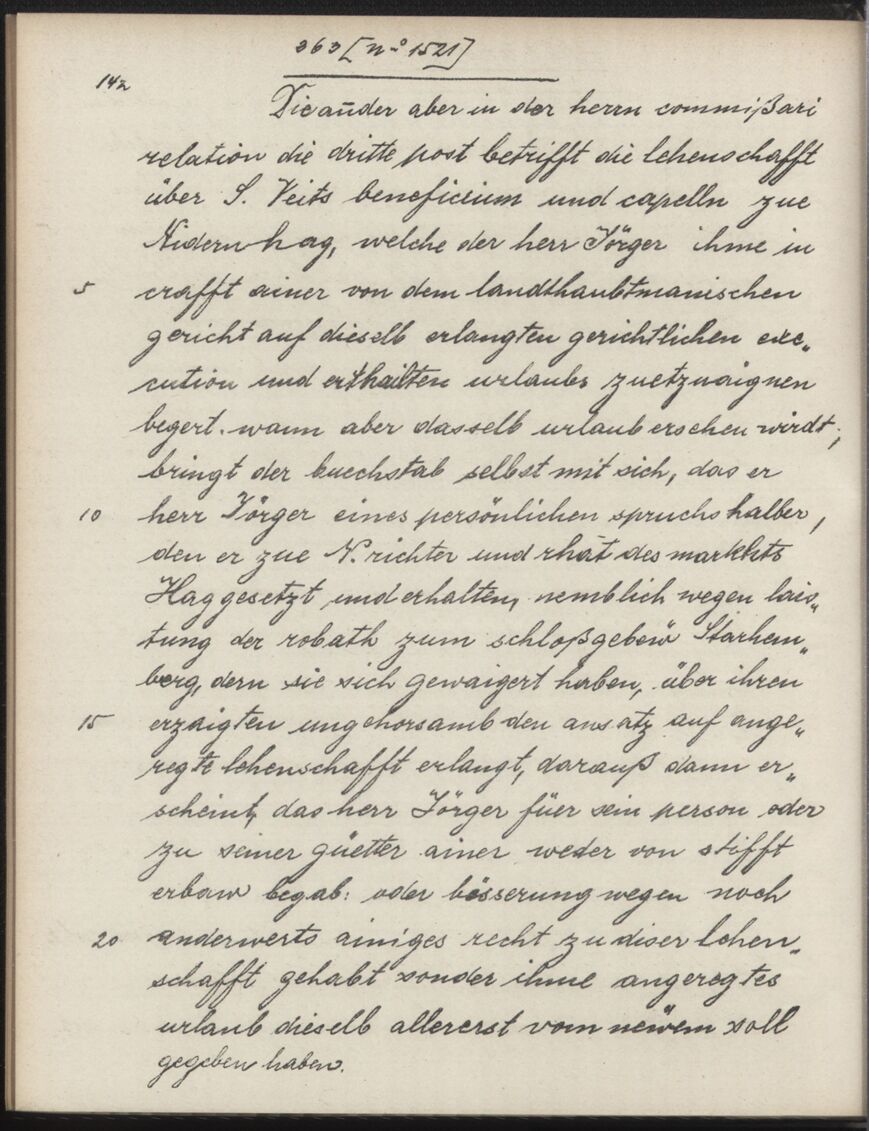 363 [nº 1521]
142
Die ander aber in der herrn commißari
relation die dritte post betrifft die lehenschafft
über S. Veits beneficium und capelln zue
Nidernhag, welche der herr Jörger ihme in
5 crafft ainer von dem landthaubtmanischen
gericht auf dieselb erlangten gerichtlichen exe„
cution und erthailten urlaubs zuetzuaignen
begert. wann aber dasselb urlaub ersehen wirdt,
bringt der buechstab selbst mit sich, das er
10 herr Jörger eines persönlichen spruchs halber,
den er zue N. richter und rhat des markhts
Hag gesetzt und erhalten, nemblich wegen lais„
tung der robath zum schloßgebew Starhem„
berg, dern sie sich gewaigert haben, über ihren
15 erzaigten ungehorsamb den ansatz auf ange„
regte lehenschafft erlangt, darauß dann er„
scheint, das herr Jörger füer sein person oder
zu seiner güetter ainer weder von stifft
erbaw begab: oder bösserung wegen noch
20 anderwerts ainiges recht zu diser lehen„
schafft gehabt sonder ihme angeregtes
urlaub dieselb allererst vom newem soll
gegeben haben.